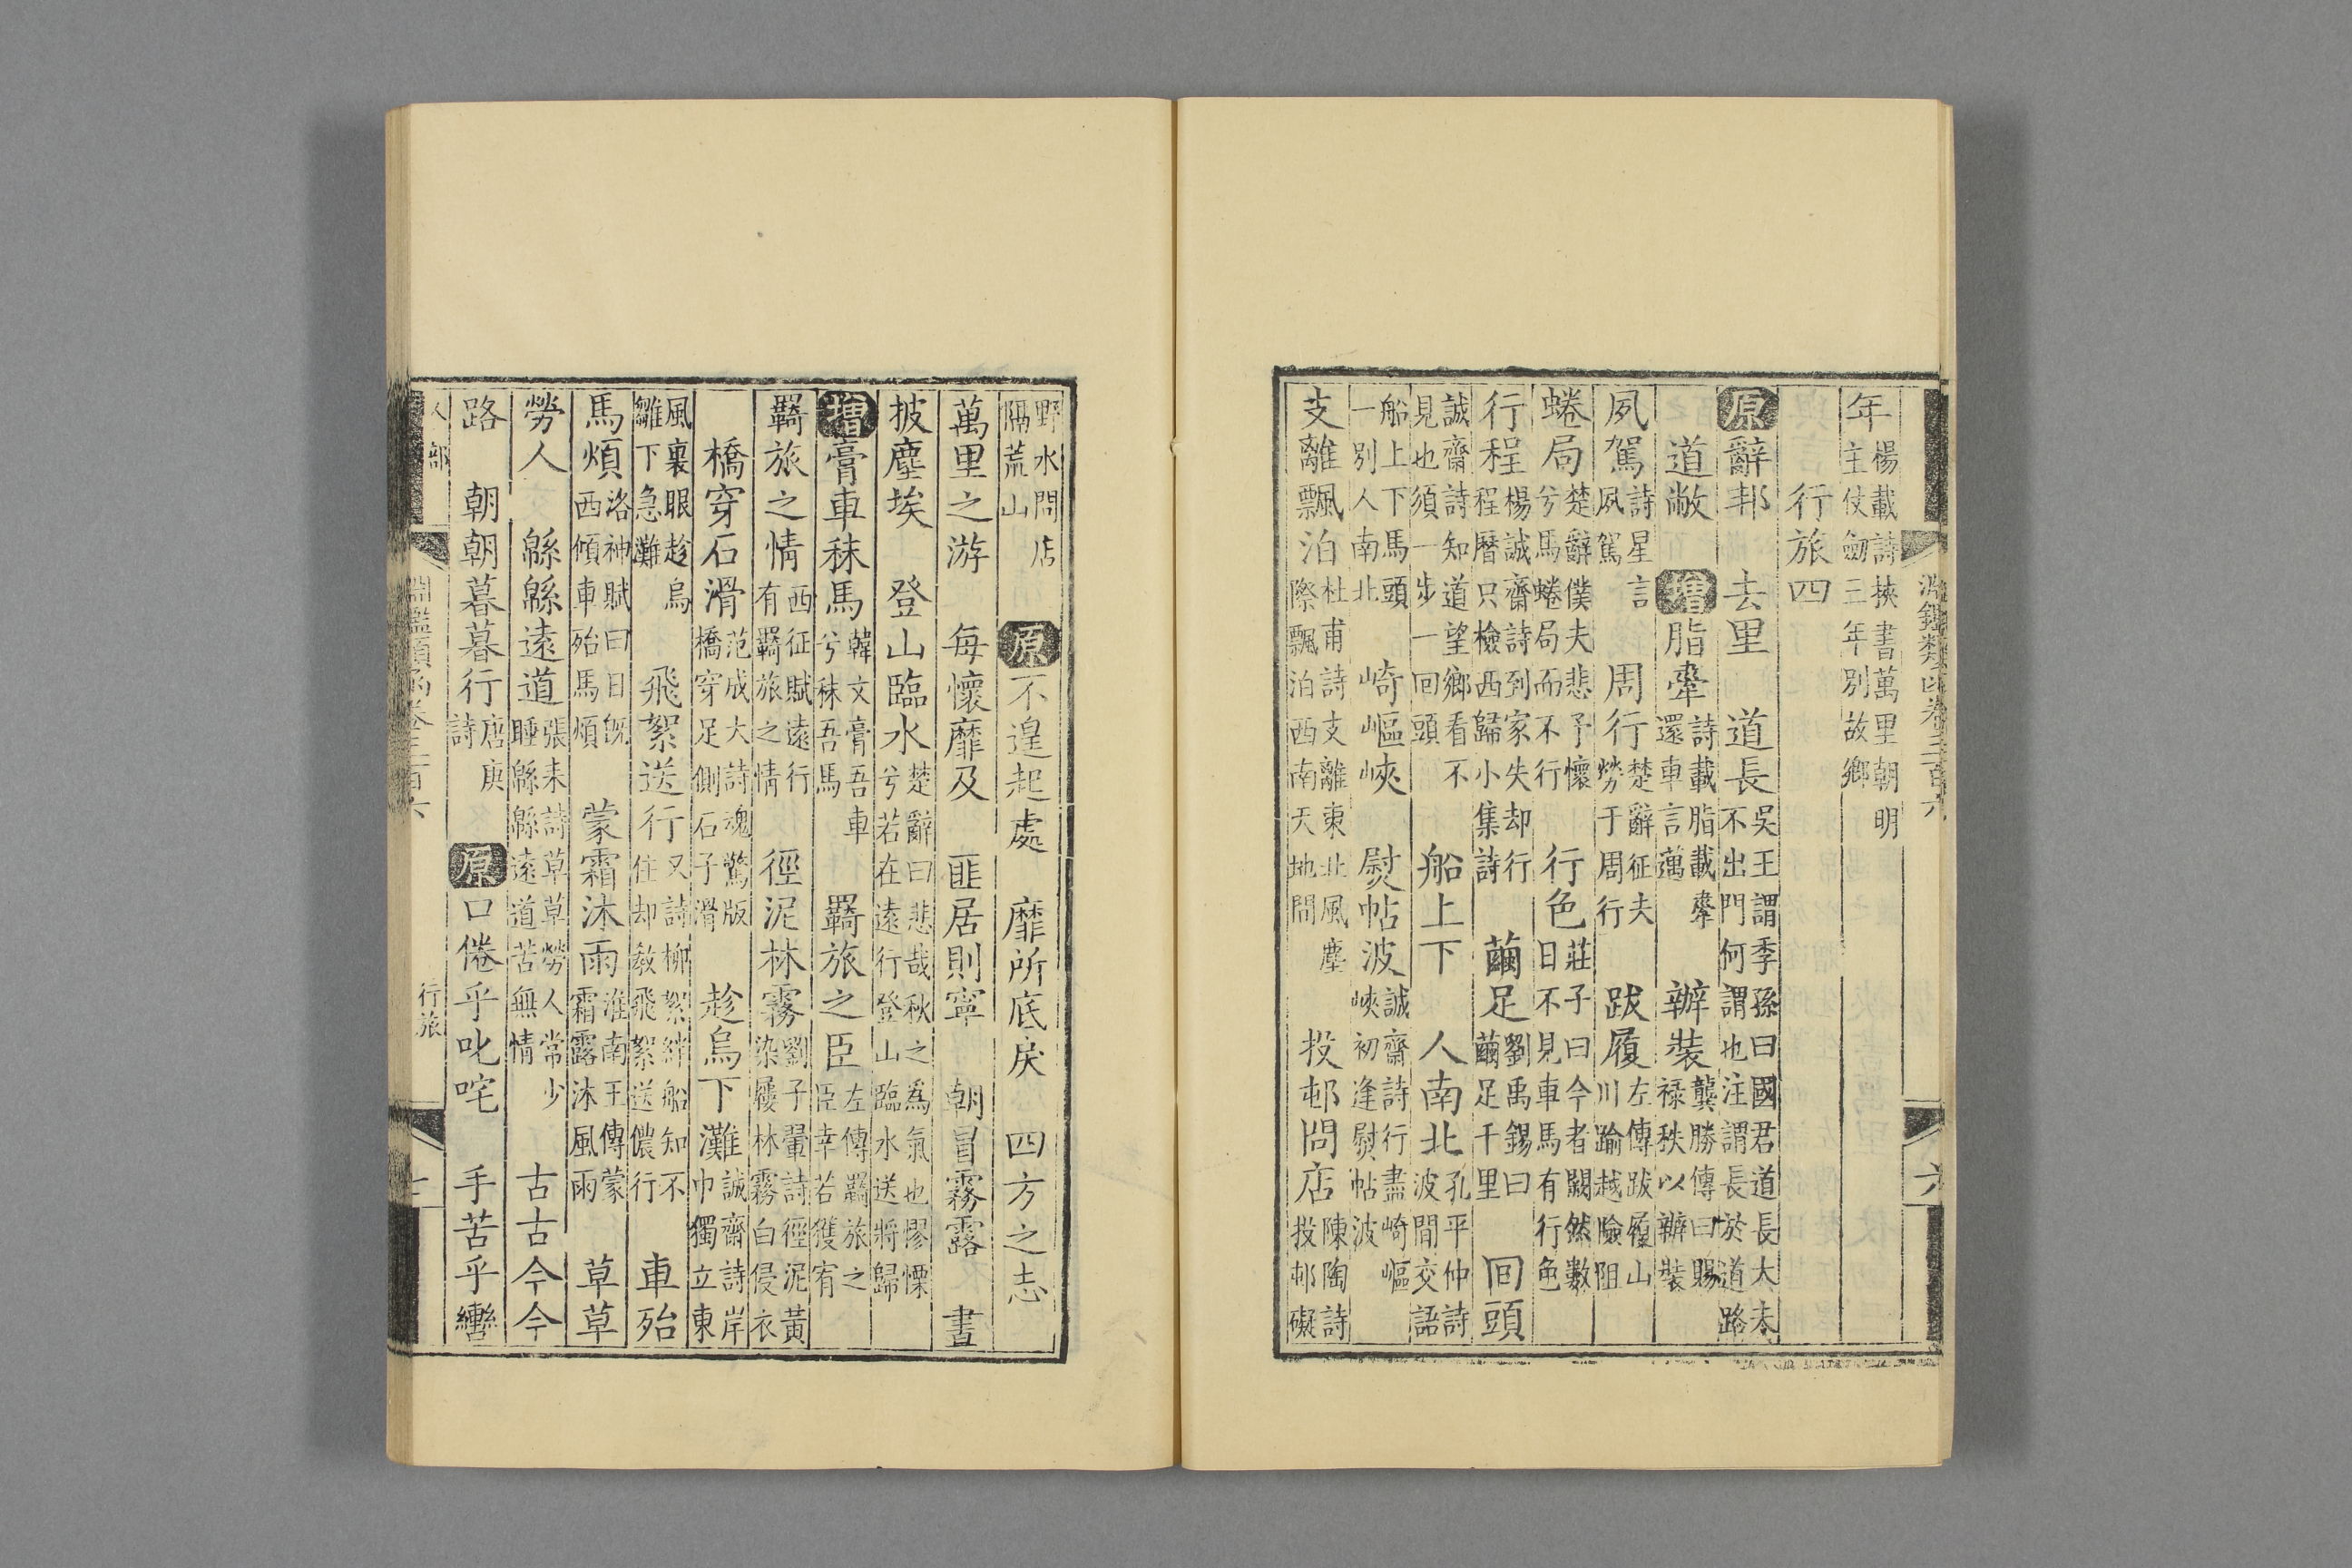 淵鑑類函卷三百六 六
年楊載詩挾書萬里朝明主仗劒三年別故鄉
行旅四
原辭邦 去里 道長吳王謂季孫曰國君道長大未不出門何謂也注謂長於道路
道敝 增脂舝詩載脂載舝還車言邁 辦裝龔勝傳曰賜祿秩以辦裝
夙駕詩星言夙駕 周行楚辭征夫勞于周行 跋履左傳跋履山川踰越險阻
蜷局楚辭僕夫悲予懷兮馬蜷局而不行 行色莊子曰今者闕然數日不見車馬有行色
行程楊誠齋詩到家失却行程曆只檢西歸小集詩 繭足劉禹錫曰繭足千里 回頭
誠齋詩知道望鄉看不見也須一步一回頭 船上下 人南北孔平仲詩波間交語
船上下馬頭一別人南北 崎嶇峽 熨帖波誠齋詩行盡崎嶇峽初逢熨帖波
支離飄泊杜甫詩支離東北風塵際飄泊西南天地間 投邨問店陳陶詩投邨礙
野水問店隔荒山 原不遑起處 靡所底戾 四方之志
萬里之游 每懷靡及 匪居則寧 朝冒霧露 晝
披塵埃 登山臨水楚辭曰悲哉秋之爲氣也憀慄兮若在遠行登山臨水送將歸
增膏車秣馬韓文膏吾車兮秣吾馬 羇旅之臣左傳羇旅之臣幸若獲宥
羇旅之情西征賦遠行有羇旅之情 徑泥林霧劉子翬詩徑泥黃染屨林霧白侵衣
橋穿石滑范成大詩魂驚版橋穿足側石子滑 趁烏下灘誠齋詩岸巾獨立東
風裏眼趁烏雛下急灘 飛絮送行又詩柳絮絆船知不住却教飛絮送儂行 車殆
馬煩洛神賦曰日既西傾車殆馬煩 蒙霜沐雨淮南王傳蒙霜露沐風雨 草草
勞人 緜緜遠道張耒詩草草勞人常少睡緜緜遠道苦無情 古古今今
路 朝朝暮暮行唐庚詩 原口倦乎叱咤 手苦乎轡
人部 淵鑑類函卷三百六 行旅 七